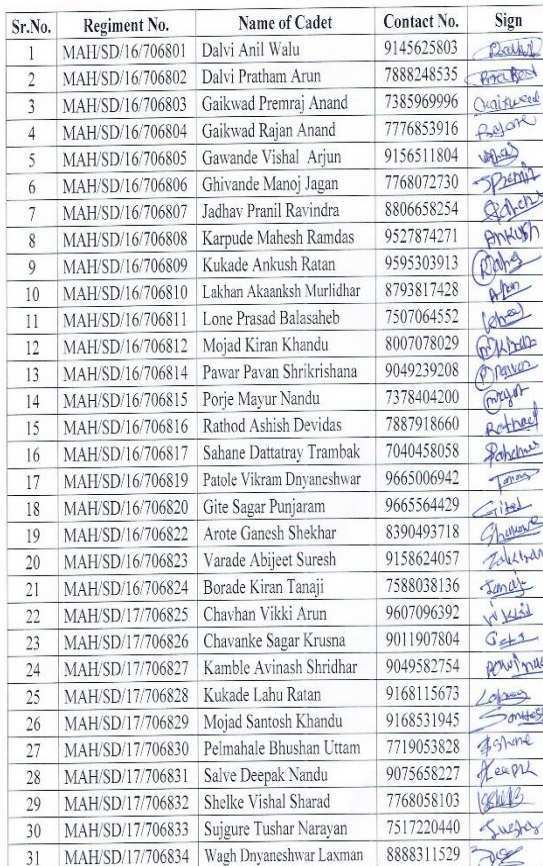 Sr.No. Regiment No. Name of Cadet Contact No. Sign
1 MAH/SD/16/706801 Dalvi Anil Walu 9145625803
2 MAH/SD/16/706802 Dalvi Pratham Arun 7888248535
3 MAH/SD/16/706803 Gaikwad Premraj Anand 7385969996 Gaikwad
4 MAH/SD/16/706804 Gaikwad Rajan Anand 7776853916
5 MAH/SD/16/706805 Gawande Vishal Arjun 9156511804
6 MAH/SD/16/706806 Ghivande Manoj Jagan 7768072730
7 MAH/SD/16/706807 Jadhav Pranil Ravindra 8806658254
8 MAH/SD/16/706808 Karpude Mahesh Ramdas 9527874271 Ankush
9 MAH/SD/16/706809 Kukade Ankush Ratan 9595303913
10 MAH/SD/16/706810 Lakhan Akaanksh Murlidhar 8793817428
11 MAH/SD/16/706811 Lone Prasad Balasaheb 7507064552
12 MAH/SD/16/706812 Mojad Kiran Khandu 8007078029
13 MAH/SD/16/706814 Pawar Pavan Shrikrishana 9049239208
14 MAH/SD/16/706815 Porje Mayur Nandu 7378404200
15 MAH/SD/16/706816 Rathod Ashish Devidas 7887918660 Rathod
16 MAH/SD/16/706817 Sahane Dattatray Trambak 7040458058
17 MAH/SD/16/706819 Patole Vikram Dnyaneshwar 9665006942
18 MAH/SD/16/706820 Gite Sagar Punjaram 9665564429
19 MAH/SD/16/706822 Arote Ganesh Shekhar 8390493718
20 MAH/SD/16/706823 Varade Abijeet Suresh 9158624057
21 MAH/SD/16/706824 Borade Kiran Tanaji 7588038136
22 MAH/SD/17/706825 Chavhan Vikki Arun 9607096392
23 MAH/SD/17/706826 Chavanke Sagar Krusna 9011907804
24 MAH/SD/17/706827 Kamble Avinash Shridhar 9049582754
25 MAH/SD/17/706828 Kukade Lahu Ratan 9168115673
26 MAH/SD/17/706829 Mojad Santosh Khandu 9168531945
27 MAH/SD/17/706830 Pelmahale Bhushan Uttam 7719053828
28 MAH/SD/17/706831 Salve Deepak Nandu 9075658227
29 MAH/SD/17/706832 Shelke Vishal Sharad 7768058103
30 MAH/SD/17/706833 Sujgure Tushar Narayan 7517220440
31 MAH/SD/17/706834 Wagh Dnyaneshwar Laxman 8888311529